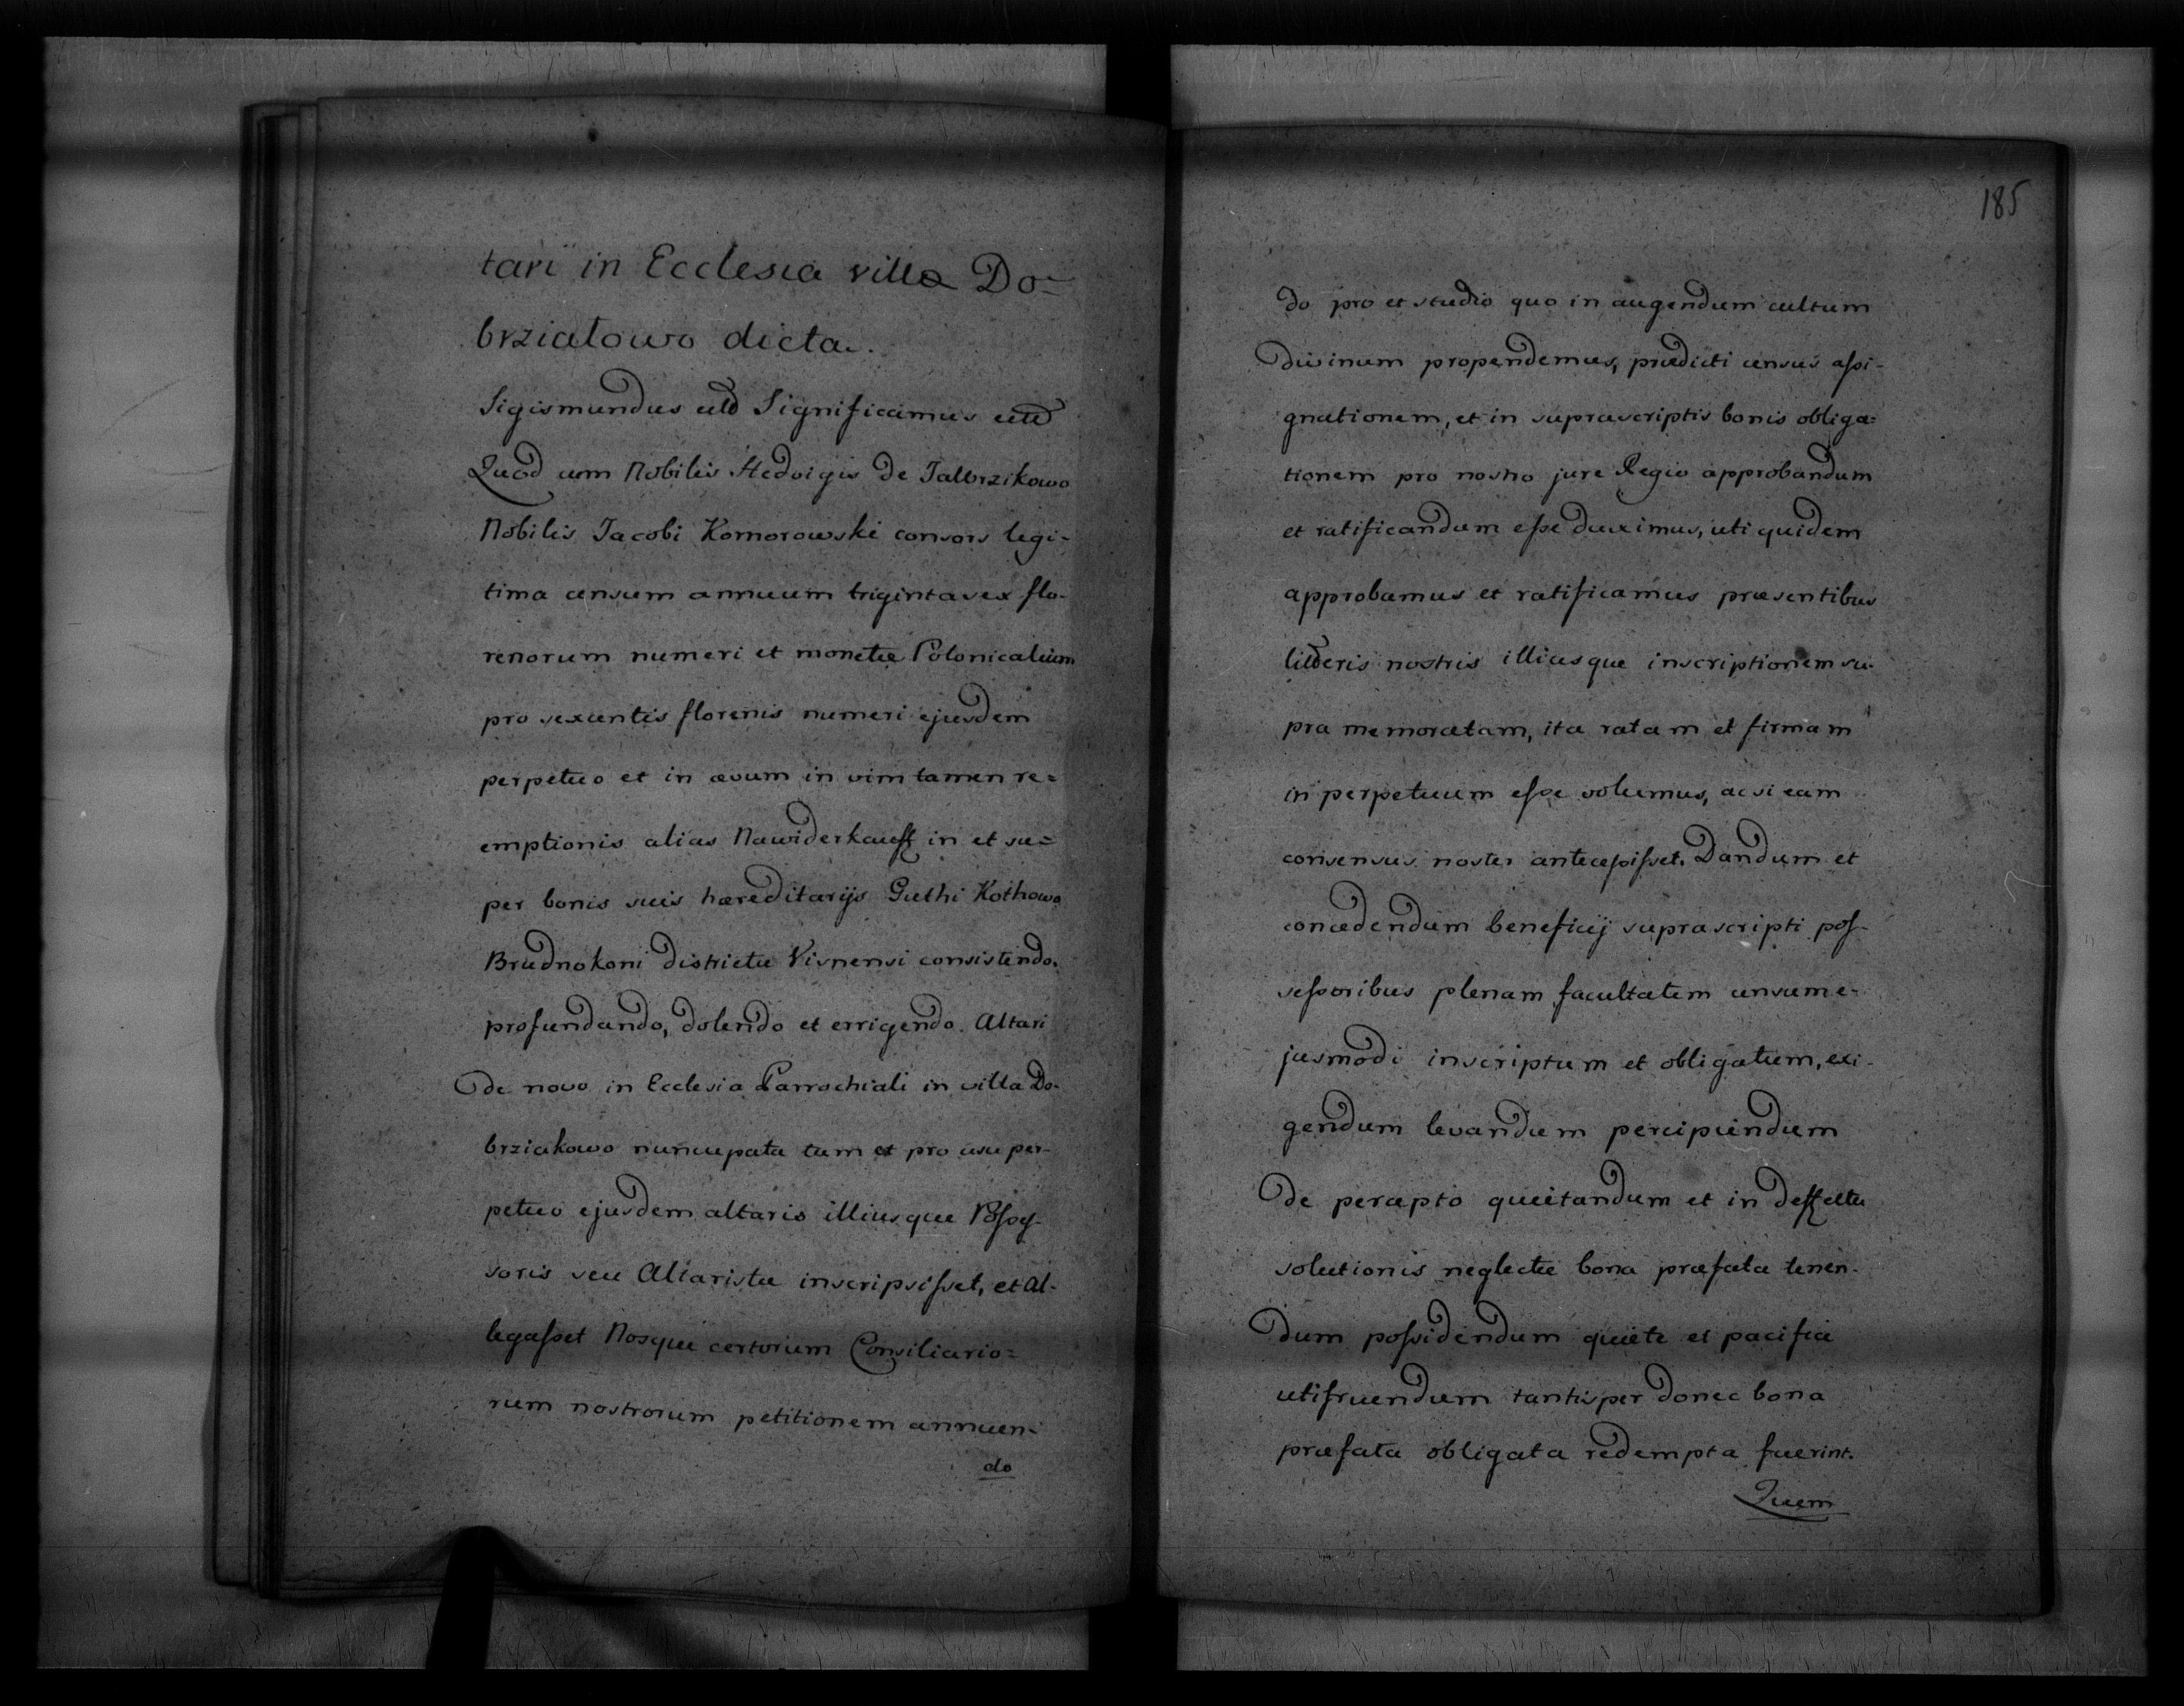 tari in Ecclesia villa Do=
brzialowo dicta.
Sigismundus etc Significamus etc
Quod cum Nobilis Hedvigis de Jalbrzikowo
Nobilis Jacobi Komorowski consors legi-
tima censum annuum triginta sex flo-
renorum numeri et monetæ Polonicalium
pro sexcentis florenis numeri ejusdem
perpetuo et in ævum in vim tamen re=
emptionis alias Nawiderkauff in et su=
per bonis suis hæreditarijs Guthi Kothowo
Brudnokoni districtu Visnensi consistendo.
profundando, dolendo et errigendo. Altari
de novo in Ecclesia Parrochiali in villa Do-
brziakowo nuncupata tum et pro usu per-
petuo ejusdem altaris illiusque Possess-
soris seu Altaristæ inscripsisset, et al-
legasset Nosque certorum Consiliario=
rum nostrorum petitionem annuen-
do
185
do pro et studio quo in augendum cultum
divinum propendemus, prædicti census assi-
gnationem, et in suprascriptis bonis obliga=
tionem pro nostro jure Regio approbandum
et ratificandum esse duximus, uti quidem
approbamus et ratificamus præsentibus
litteris nostris illiusque inscriptionem su-
pra memoratam, ita ratam et firmam
in perpetuum esse volumus, ac si eam
consensus noster antecessisset. Dandum et
concedendum beneficij suprascripti pos-
sessoribus plenam facultatem censum e-
jusmodi inscriptum et obligatum, exi-
gendum levandum percipiendum
de percepto quietandum et in deffectu
solutionis neglectæ bona præfata tenen-
dum possidendum quiete et pacifice
utifruendum tantisper donec bona
præfata obligata redempta fuerint.
Quem